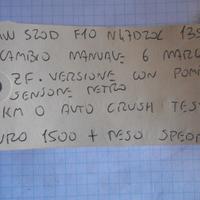 520D F10 N47D20C 135
CAMBIO MANUALE 6 MARC
ZF. VERSIONE CON POMP
SENSORE RETRO
KM 0 AUTO CRUSH TEST
URO 1500 + PESO SPEDI